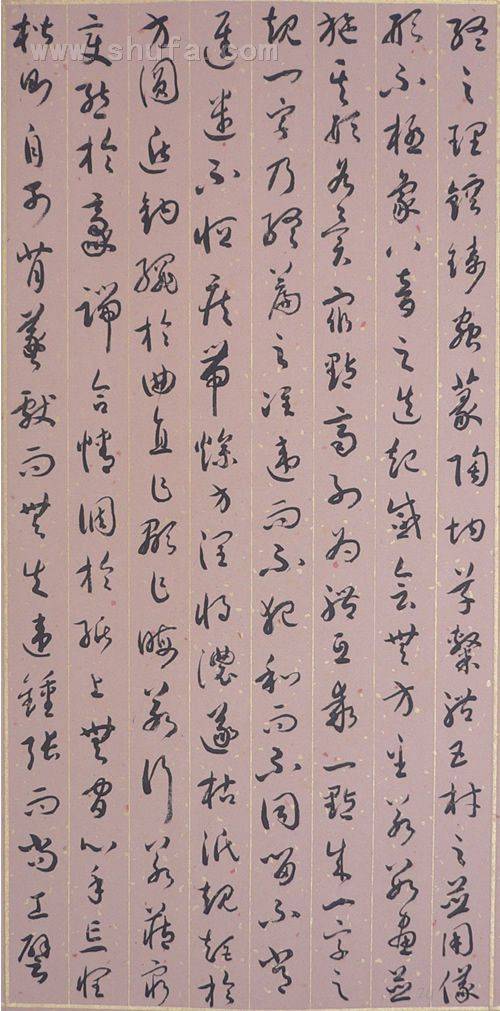 終之理鎔鑄蟲篆陶均草隸體五材之並用儀
形不極象八音之迭起感會無方至若數畫並
施其形各異衆點齊列為體互乖一點成一字之
規一字乃終篇之準違而不犯和而不同留不常
遲遣不恒疾帶燥方潤將濃遂枯泯規矩於
方圓遁鉤繩於曲直乍顯乍晦若行若藏窮
變態於毫端合情調於紙上無間心手忘懷
楷則自可背羲獻而無失違鍾張而尚工譬
www.shufa.com